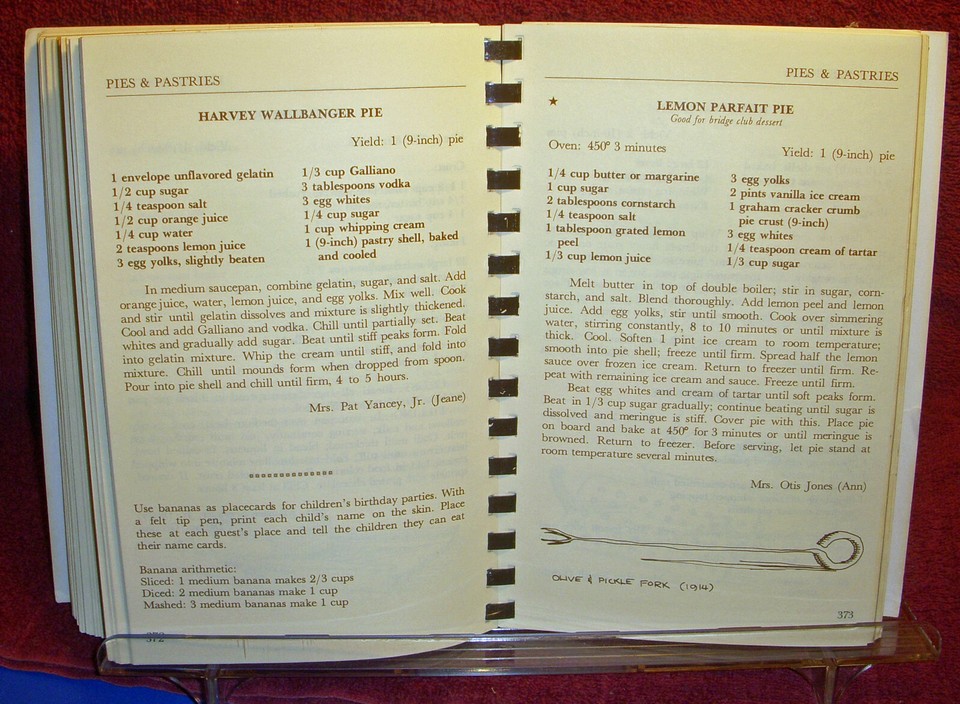 PIES & PASTRIES
HARVEY WALLBANGER PIE
Yield: 1 (9-inch) pie
1 envelope unflavored gelatin
1/2 cup sugar
1/4 teaspoon salt
1/2 cup orange juice
1/4 cup water
2 teaspoons lemon juice
3 egg yolks, slightly beaten
1/3 cup Galliano
3 tablespoons vodka
3 egg whites
1/4 cup sugar
1 cup whipping cream
1 (9-inch) pastry shell, baked
and cooled
In medium saucepan, combine gelatin, sugar, and salt. Add
orange juice, water, lemon juice, and egg yolks. Mix well. Cook
and stir until gelatin dissolves and mixture is slightly thickened.
Cool and add Galliano and vodka. Chill until partially set. Beat
whites and gradually add sugar. Beat until stiff peaks form. Fold
into gelatin mixture. Whip the cream until stiff, and fold into
mixture. Chill until mounds form when dropped from spoon.
Pour into pie shell and chill until firm, 4 to 5 hours.
Mrs. Pat Yancey, Jr. (Jeane)
Use bananas as placecards for children's birthday parties. With
a felt tip pen, print each child's name on the skin. Place
these at each guest's place and tell the children they can eat
their name cards.
Banana arithmetic:
Sliced: 1 medium banana makes 2/3 cups
Diced: 2 medium bananas make 1 cup
Mashed: 3 medium bananas make 1 cup
372
PIES & PASTRIES
LEMON PARFAIT PIE
Good for bridge club dessert
Oven: 450° 3 minutes
Yield: 1 (9-inch) pie
1/4 cup butter or margarine
1 cup sugar
2 tablespoons cornstarch
1/4 teaspoon salt
1 tablespoon grated lemon
peel
1/3 cup lemon juice
3 egg yolks
2 pints vanilla ice cream
1 graham cracker crumb
pie crust (9-inch)
3 egg whites
1/4 teaspoon cream of tartar
1/3 cup sugar
Melt butter in top of double boiler; stir in sugar, corn-
starch, and salt. Blend thoroughly. Add lemon peel and lemon
juice. Add egg yolks, stir until smooth. Cook over simmering
water, stirring constantly, 8 to 10 minutes or until mixture is
thick. Cool. Soften 1 pint ice cream to room temperature;
smooth into pie shell; freeze until firm. Spread half the lemon
sauce over frozen ice cream. Return to freezer until firm. Re-
peat with remaining ice cream and sauce. Freeze until firm.
Beat egg whites and cream of tartar until soft peaks form.
Beat in 1/3 cup sugar gradually; continue beating until sugar is
dissolved and meringue is stiff. Cover pie with this. Place pie
on board and bake at 450° for 3 minutes or until meringue is
browned. Return to freezer. Before serving, let pie stand at
room temperature several minutes.
Mrs. Otis Jones (Ann)
OLIVE & PICKLE FORK (1914)
373